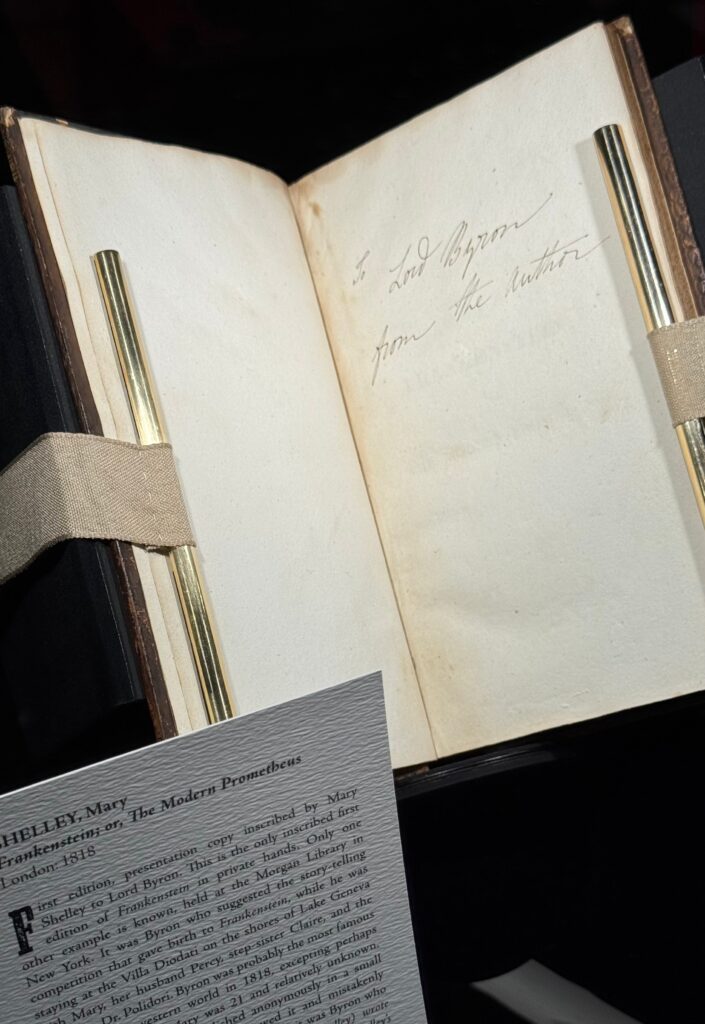 To Lord Byron
from the author
SHELLEY, Mary
Frankenstein; or, The Modern Prometheus
London: 1818
First edition, presentation copy inscribed by Mary
Shelley to Lord Byron. This is the only inscribed first
edition of Frankenstein in private hands. Only one
other example is known, held at the Morgan Library in
New York. It was Byron who suggested the story-telling
competition that gave birth to Frankenstein, while he was
staying at the Villa Diodati on the shores of Lake Geneva
Mary, her husband Percy, step-sister Claire, and the
Dr. Polidori. Byron was probably the most famous
western world in 1818, excepting perhaps
Mary was 21 and relatively unknown.
anonymously in a small
it and mistakenly
it was Byron who
wrote